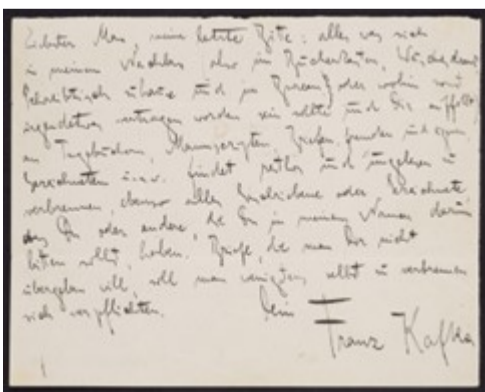 Liebster Max, meine letzte Bitte: alles was sich
in meinem Nachlass also im Bücherkasten, Wäscheschrank
Schreibtisch zuhause und im Bureau, oder wohin sonst
irgendetwas vertragen worden sein sollte und Dir auffällt
an Tagebüchern, Manuscripten, Briefen, fremden und eigenen
Gezeichnetem u.s.w. findet restlos und ungelesen zu
verbrennen, ebenso alles Geschriebene oder Gezeichnete
das Du oder andere, die Du in meinem Namen darum
bitten sollst, haben. Briefe, die man Dir nicht
übergeben will, soll man wenigstens selbst zu verbrennen
sich verpflichten.
Dein
Franz Kafka